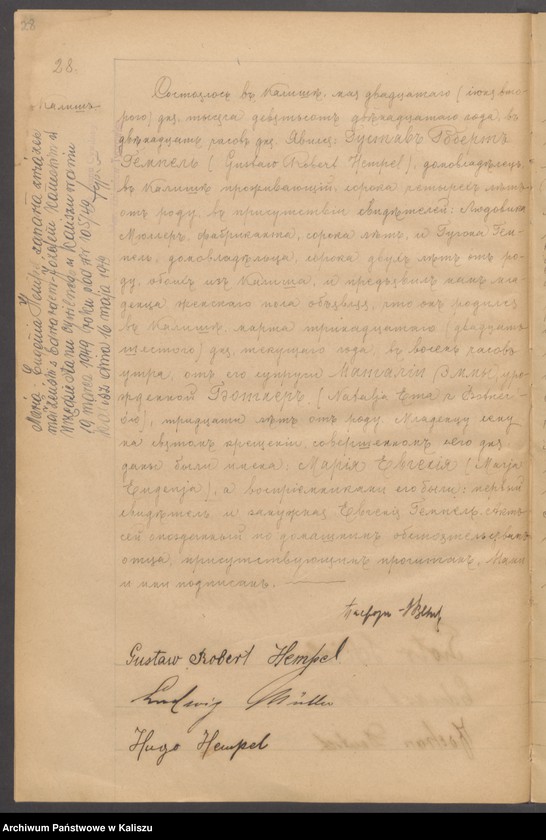 28
28.
Калишъ
Состоялось въ Калишѣ, мая двадцатаго (іюня вто-
рого) дня, тысяча девятьсотъ двѣнадцатаго года, въ
двѣнадцать часовъ дня. Явился: Густавъ Робертъ
Гемпель (Gustaw Robert Hempel), домовладѣлецъ,
въ Калишѣ проживающій, сорока четырехъ лѣтъ
отъ роду, въ присутствіи свидѣтелей: Людовика
Мюллеръ, фабриканта, сорока лѣтъ, и Гугона Гем-
пель, домовладѣльца, сорока двухъ лѣтъ отъ ро-
ду, обоихъ изъ Калиша, и предъявилъ намъ мла-
денца женскаго пола объявляя, что онъ родился
въ Калишѣ, марта тринадцатаго (двадцать
шестого) дня, текущаго года, въ восемь часовъ
утра, отъ его супруги Эммы, уро-
жденной (Natalja Ema
тридцати лѣтъ отъ роду. Младенцу сему
на святомъ крещеніи, совершенномъ сего дня
даны были имена: Марія Евгенія (Marja
Eugenja), а воспріемниками его были: первый
свидѣтель и замужняя Евгенія Гемпель. Актъ
сей опозданный по домашнимъ обстоятельствамъ
отца, присутствующимъ прочитанъ, Нами
и ими подписанъ.
Пасторъ
Gustaw Robert Hempel
Ludwig Müller
Hugo Hempel
Maria Eugenia Hempel zawarła związek
małżeński
w Kaliszu
19 marca 1949 roku
16 maja 1949
Archiwum Państwowe w Kaliszu